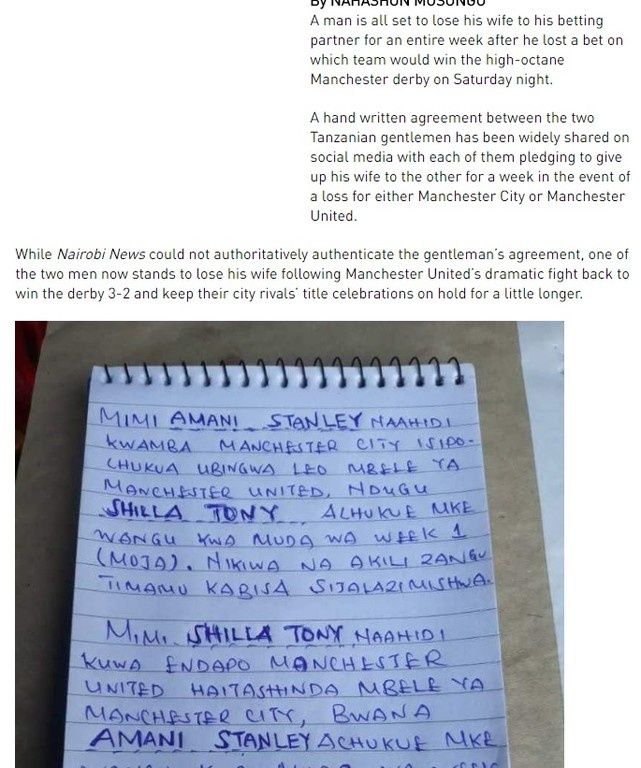 By NAHASHON MUSUNGU
A man is all set to lose his wife to his betting
partner for an entire week after he lost a bet on
which team would win the high-octane
Manchester derby on Saturday night.
A hand written agreement between the two
Tanzanian gentlemen has been widely shared on
social media with each of them pledging to give
up his wife to the other for a week in the event of
a loss for either Manchester City or Manchester
United.
While Nairobi News could not authoritatively authenticate the gentleman's agreement, one of
the two men now stands to lose his wife following Manchester United's dramatic fight back to
win the derby 3-2 and keep their city rivals' title celebrations on hold for a little longer.
MIMI AMANI STANLEY NAAHIDI
KWAMBA MANCHESTER CITY ISIPO-
CHUKUA UBINGWA LEO MBELE YA
MANCHESTER UNITED, NDUGU
SHILLA TONY ACHUKUE MKE
WANGU KWA MUDA WA WEEK 1
(MOJA). NIKIWA NA AKILI ZANGU
TIMAMU KABISA SIJALAZIMISHWA.
MIMI SHILLA TONY NAAHIDI
KUWA ENDAPO MANCHESTER
UNITED HAITASHINDA MBELE YA
MANCHESTER CITY, BWANA
AMANI STANLEY ACHUKUE MKE